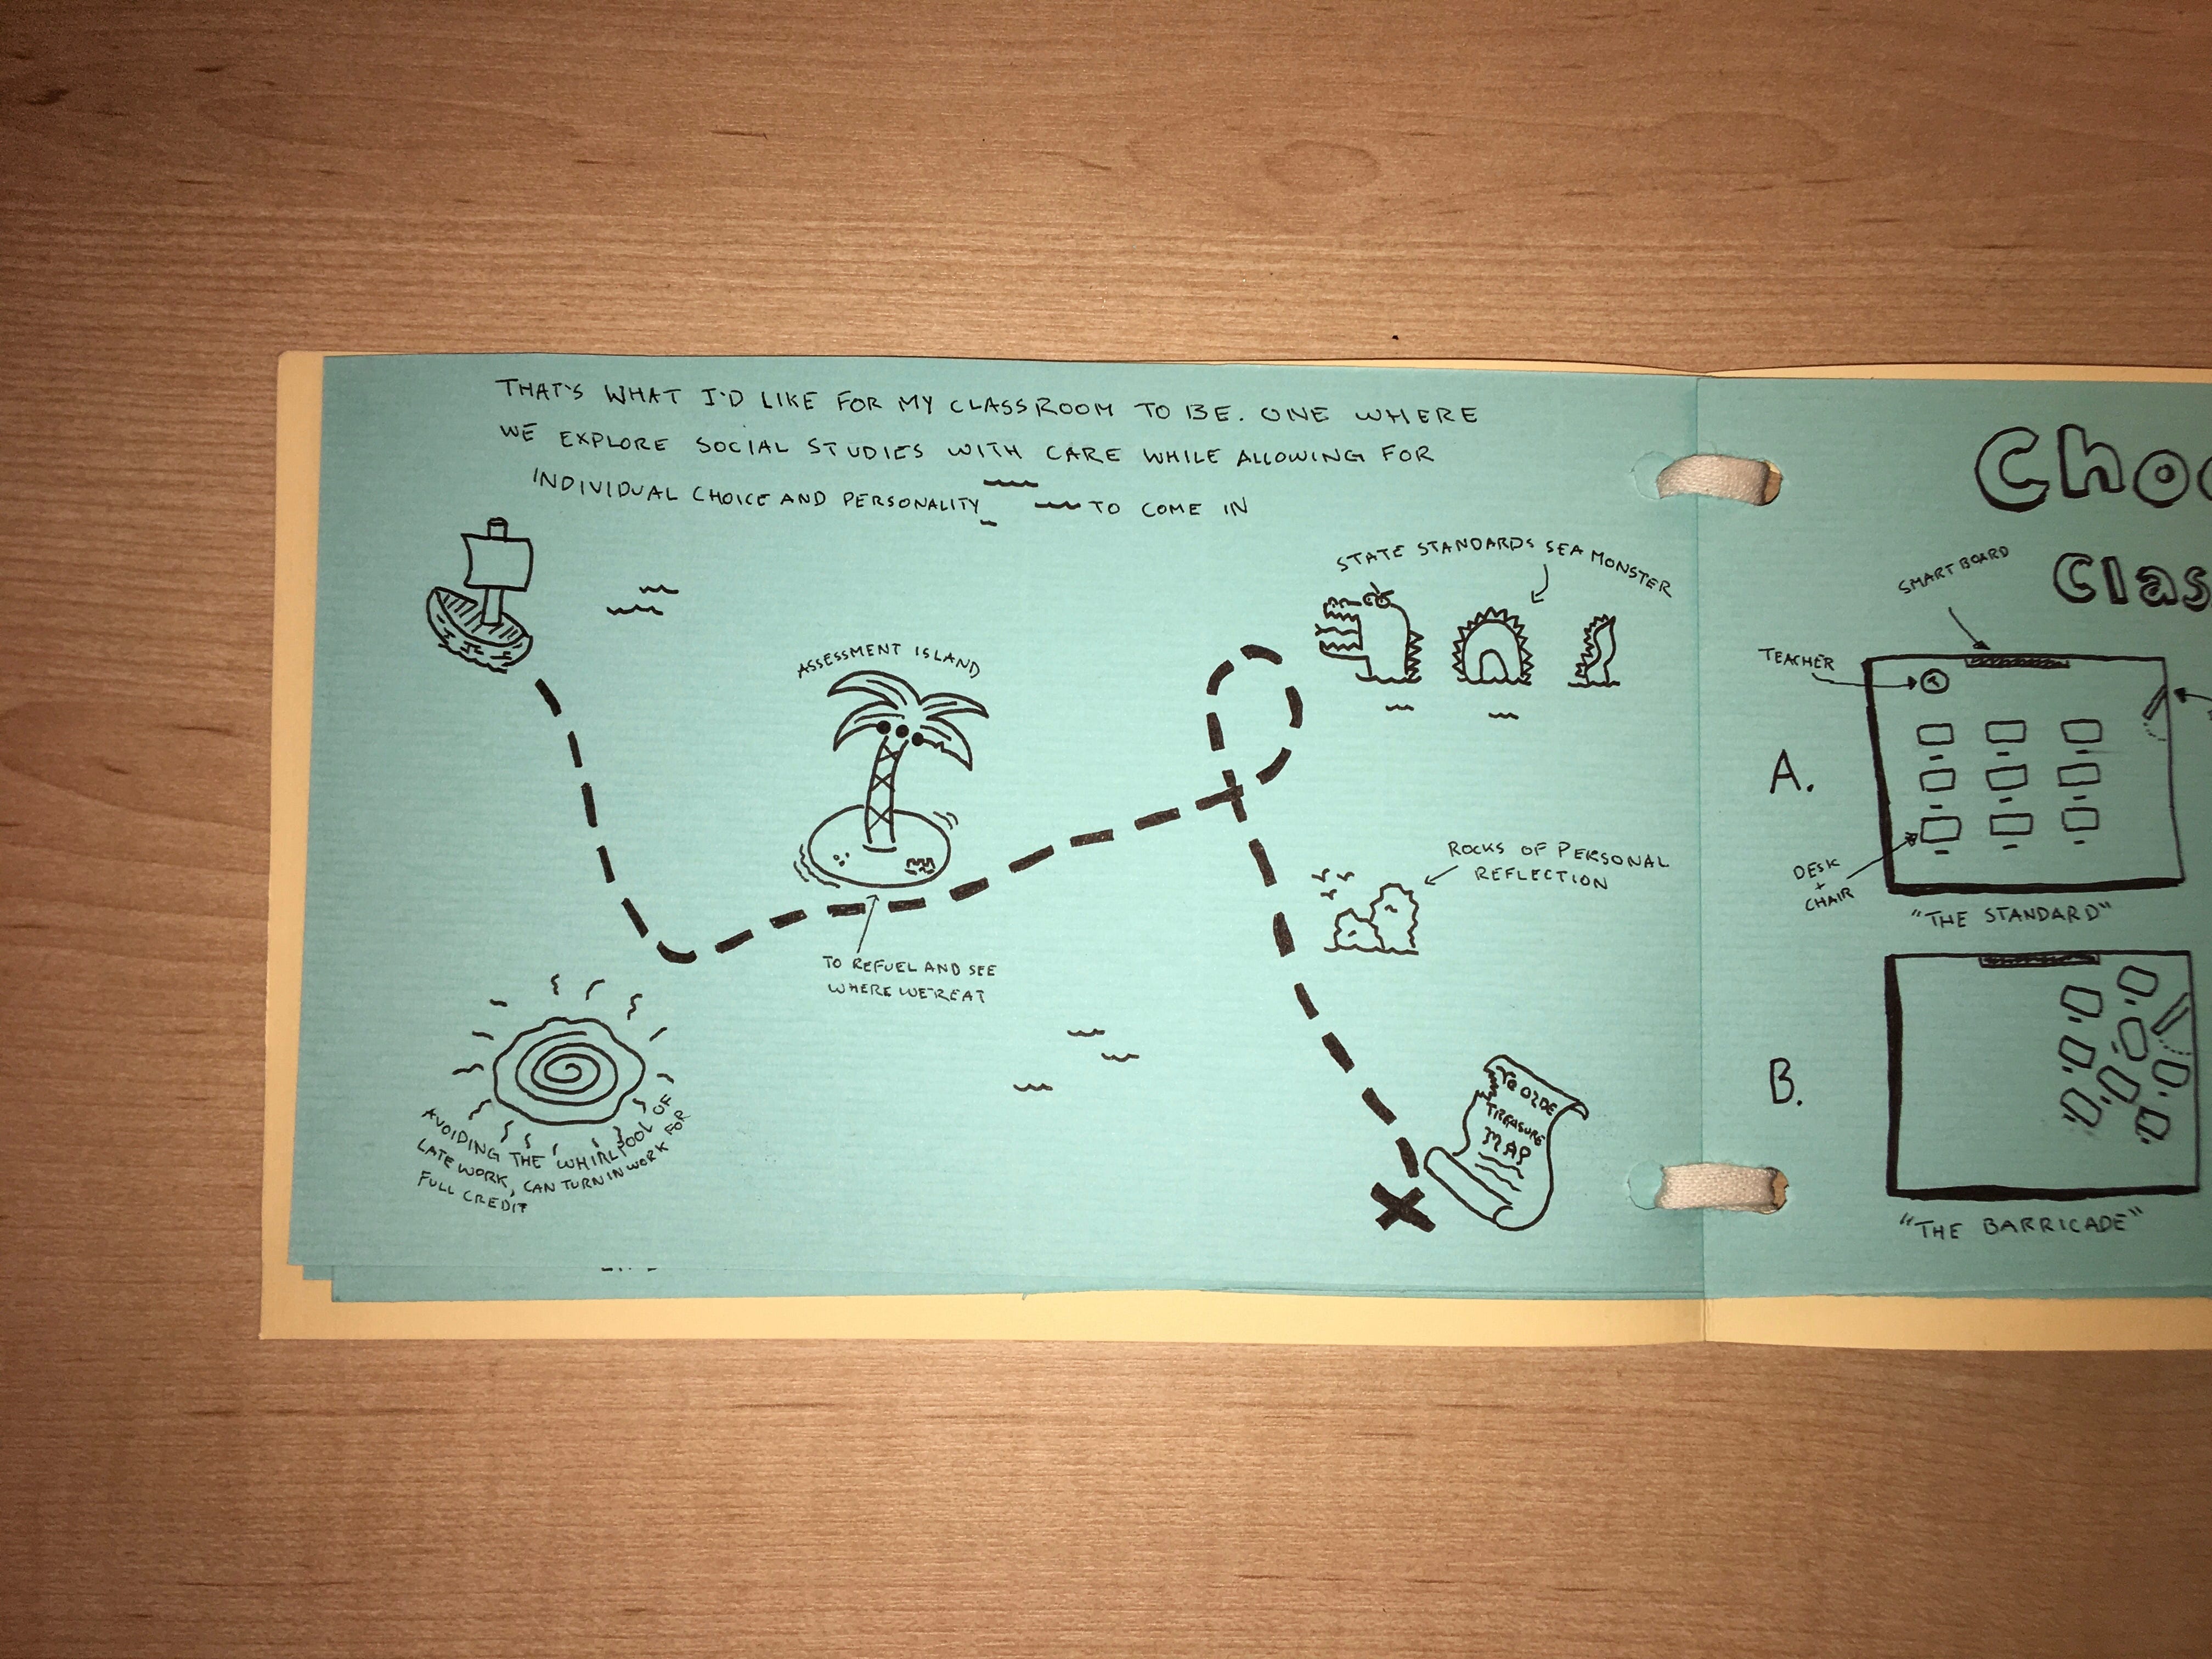 THAT'S WHAT I'D LIKE FOR MY CLASSROOM TO BE. ONE WHERE
WE EXPLORE SOCIAL STUDIES WITH CARE WHILE ALLOWING FOR
INDIVIDUAL CHOICE AND PERSONALITY TO COME IN
STATE STANDARDS SEA MONSTER
ASSESSMENT ISLAND
TO REFUEL AND SEE
WHERE WE'RE AT
ROCKS OF PERSONAL
REFLECTION
AVOIDING THE WHIRLPOOL OF
LATE WORK, CAN TURN IN WORK FOR
FULL CREDIT
Ye OLDE
TREASURE
MAP
Choo
Clas
SMART BOARD
TEACHER
T
A.
DESK
+
CHAIR
"THE STANDARD"
B.
"THE BARRICADE"